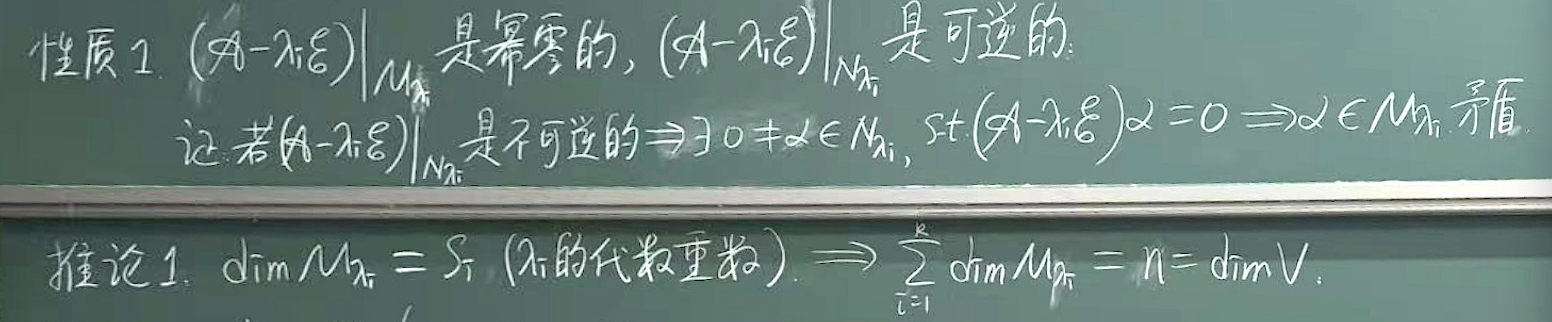 性质1. (𝒜-λᵢℰ)|_{M_{λᵢ}} 是幂零的, (𝒜-λᵢℰ)|_{N_{λᵢ}} 是可逆的.
证:若(𝒜-λᵢℰ)|_{N_{λᵢ}} 是不可逆的⇒∃0≠α∈N_{λᵢ}, st(𝒜-λᵢℰ)α=0⇒α∈M_{λᵢ}矛盾.
推论1. dim M_{λᵢ} = Sᵢ (λᵢ的代数重数). ⇒ ∑_{i=1}^{k} dim M_{λᵢ} = n = dim V.